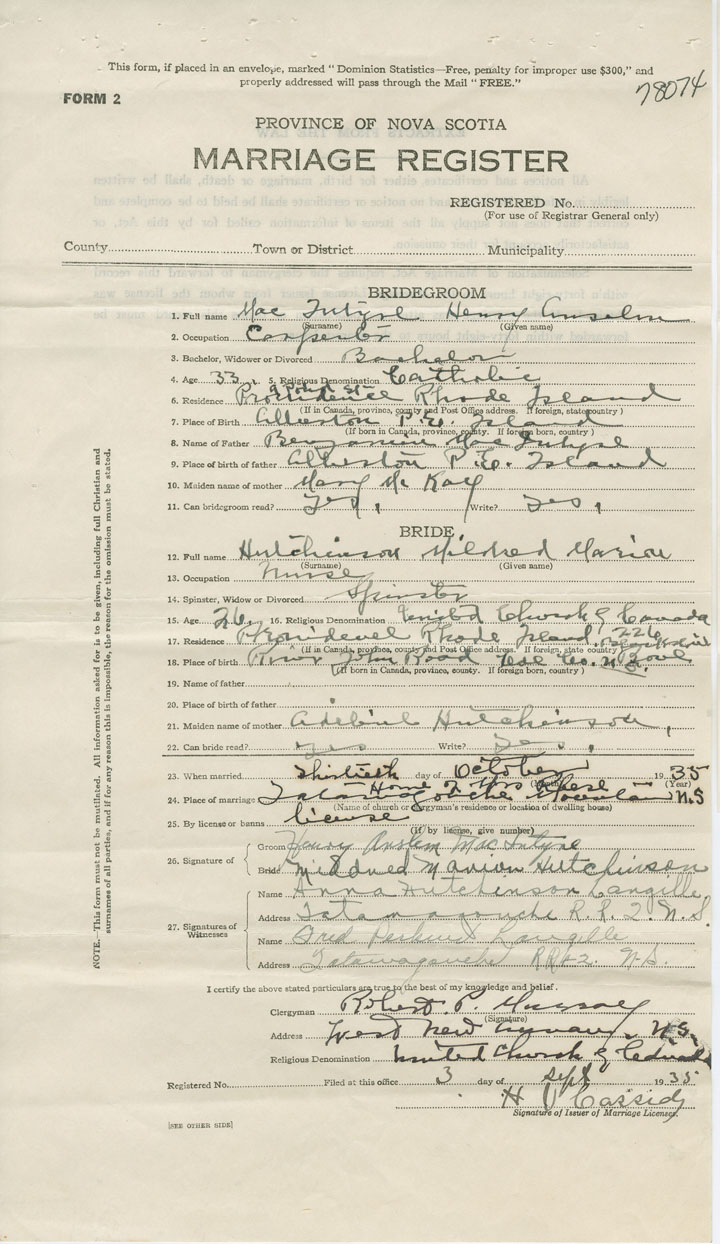 This form, if placed in an envelope, marked "Dominion Statistics—Free, penalty for improper use $300," and
properly addressed will pass through the Mail "FREE."
78074
FORM 2
PROVINCE OF NOVA SCOTIA
MARRIAGE REGISTER
REGISTERED No.
(For use of Registrar General only)
County Town or District Municipality
BRIDEGROOM
1. Full name Mac Intyre Henry Anselm
(Surname) (Given name)
2. Occupation Carpenter
3. Bachelor, Widower or Divorced Bachelor
4. Age 33 5. Religious Denomination Catholic
6. Residence Providence Rhode Island
(If in Canada, province, county and Post Office address. If foreign, state country)
7. Place of Birth Alberton P.E. Island
(If born in Canada, province, county. If foreign born, country)
8. Name of Father Benjamin Mac Intyre
9. Place of birth of father Alberton P.E. Island
10. Maiden name of mother Mary Mc Kay
11. Can bridegroom read? Yes, Write? Yes,
BRIDE
12. Full name Hutchinson Mildred Marion
(Surname) (Given name)
13. Occupation Nurse
14. Spinster, Widow or Divorced Spinster
15. Age 26 16. Religious Denomination United Church of Canada
17. Residence Providence Rhode Island, 226
(If in Canada, province, county and Post Office address. If foreign, state country)
18. Place of birth River John Road Col. Co. N.S.
(If born in Canada, province, county. If foreign born, country)
19. Name of father
20. Place of birth of father
21. Maiden name of mother Hutchinson,
22. Can bride read? Yes Write? Yes,
23. When married Thirtieth day of October 1935
(Month) (Year)
Home of
24. Place of marriage Tatamagouche Mountain N.S
(Name of church or clergyman's residence or location of dwelling house)
25. By license or banns license
(If by license, give number)
26. Signature of
Groom Henry Anslem MacIntyre
Bride Mildred Marion Hutchinson
27. Signatures of Witnesses
Name Anna Hutchinson Langille
Address Tatamagouche R.R. 2. N.S.
Name Fred Langille
Address Tatamagouche RR#2. N.S.
I certify the above stated particulars are true to the best of my knowledge and belief.
Clergyman Robert P. Murray
(Signature)
Address West New Annan, N.S.
Religious Denomination United Church of Canada
Registered No. Filed at this office 3 day of Sept 1935
H V Cassidy
Signature of Issuer of Marriage Licenses.
[SEE OTHER SIDE]
NOTE.—This form must not be mutilated. All information asked for is to be given, including full Christian and
surnames of all parties, and if for any reason this is impossible, the reason for the omission must be stated.